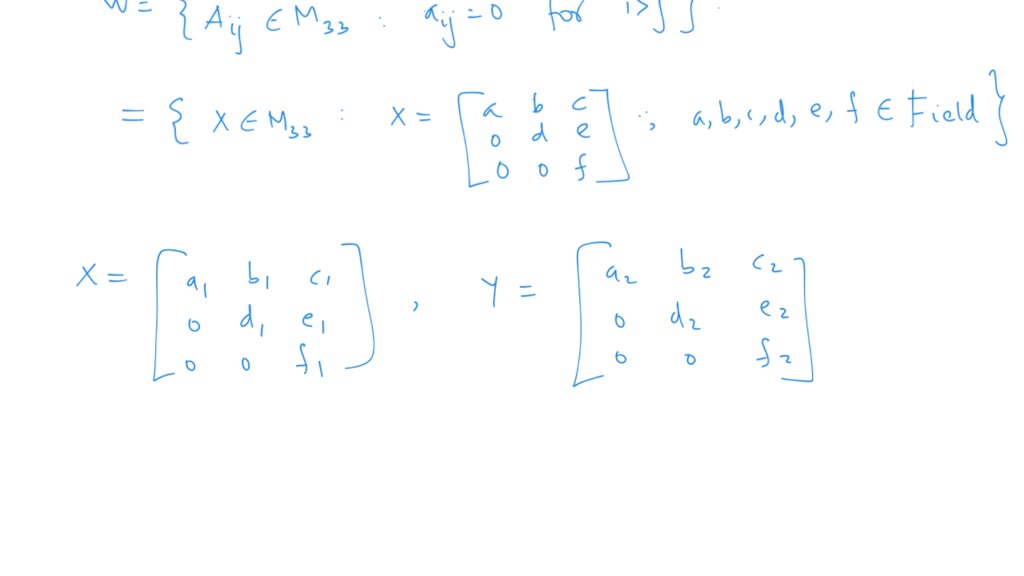 W = { Aij ∈ M33 : aij = 0 for i>j }.
= { X ∈ M33 : X = [a b c; 0 d e; 0 0 f] ; a, b, c, d, e, f ∈ Field }
X = [a1 b1 c1; 0 d1 e1; 0 0 f1] , Y = [a2 b2 c2; 0 d2 e2; 0 0 f2]